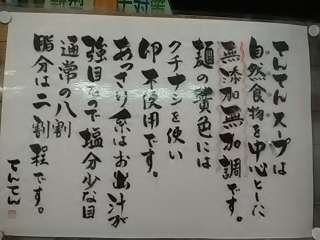 てんてんスープは
自然食物を中心とした
無添加無加調です。
麺の黄色には
クチナシを使い
卵不使用です。
あっさり系はお出汁が
強目なので塩分少な目
通常の八割
脂分は二割程です。
てんてん